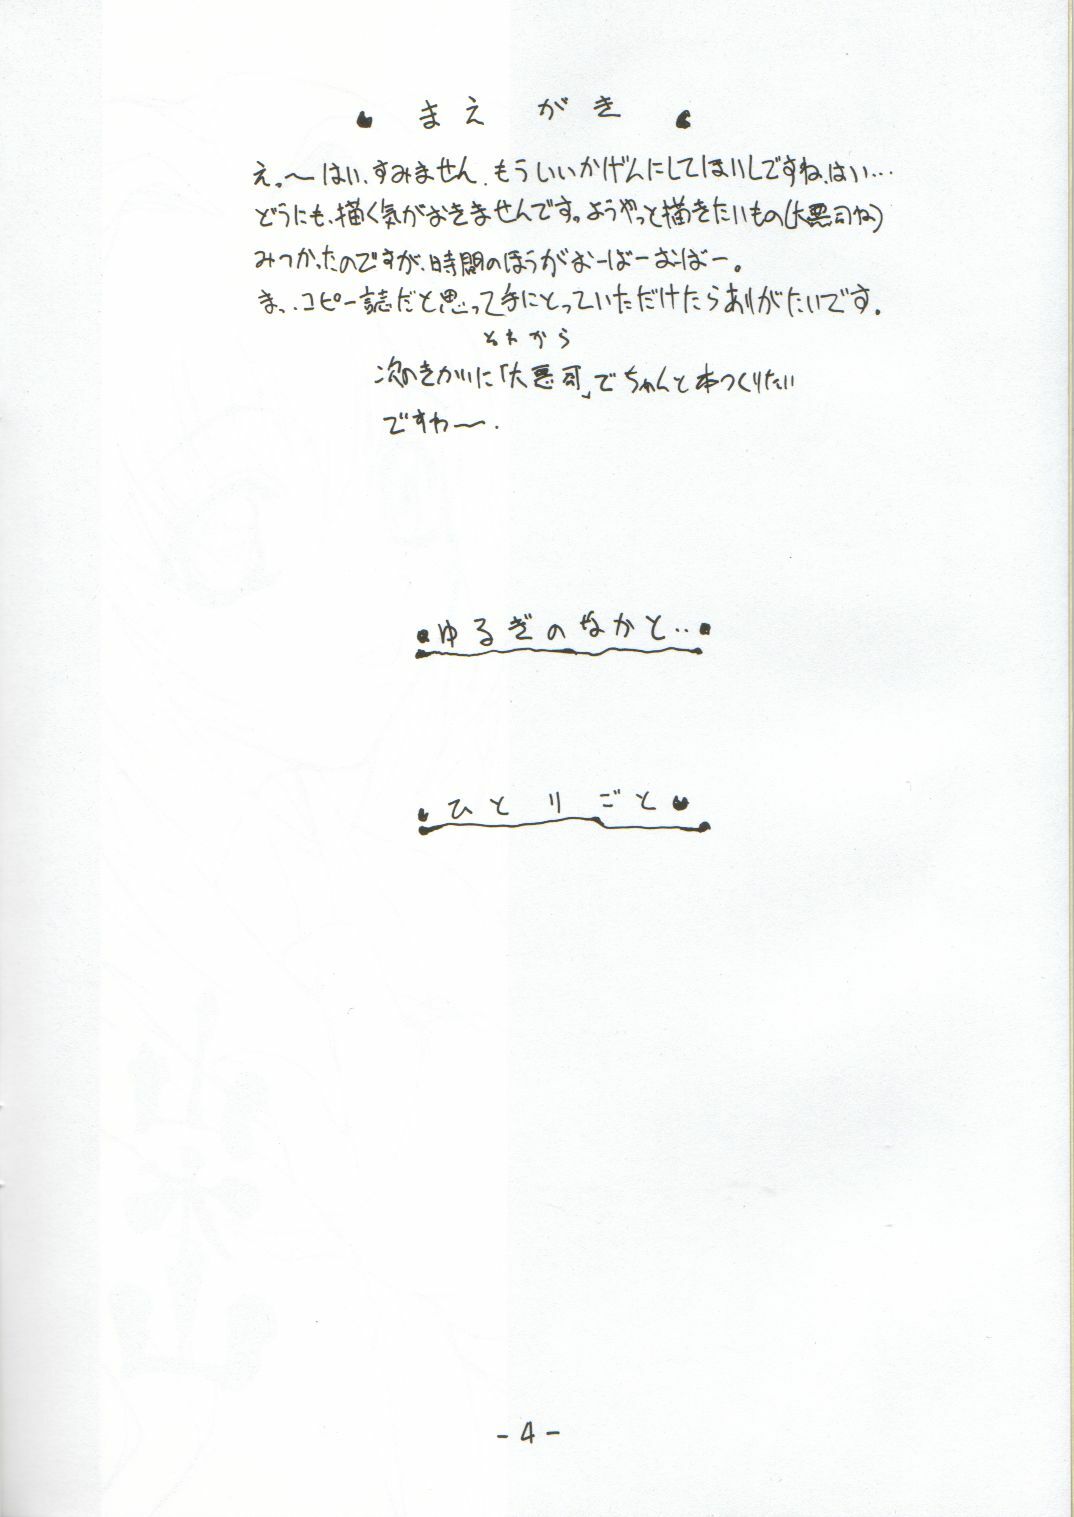 まえがき
え。～はい、すみません、もういいかげんにしてほしいですね、はい…
どうにも、描く気がおきませんです。ようやっと描きたいもの(大悪司ね)
みつかったのですが、時間のほうがおーばーおーばー。
ま、、コピー誌だと思って手にとっていただけたらありがたいです。
それから
次のきかいに「大悪司」でちゃんと本つくりたい
ですわ～.
ゆるぎのなかと..
ひとりごと
-4-